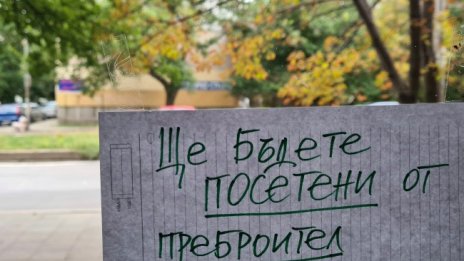 Ще бъдете
ПОСЕТЕНИ от
преброител